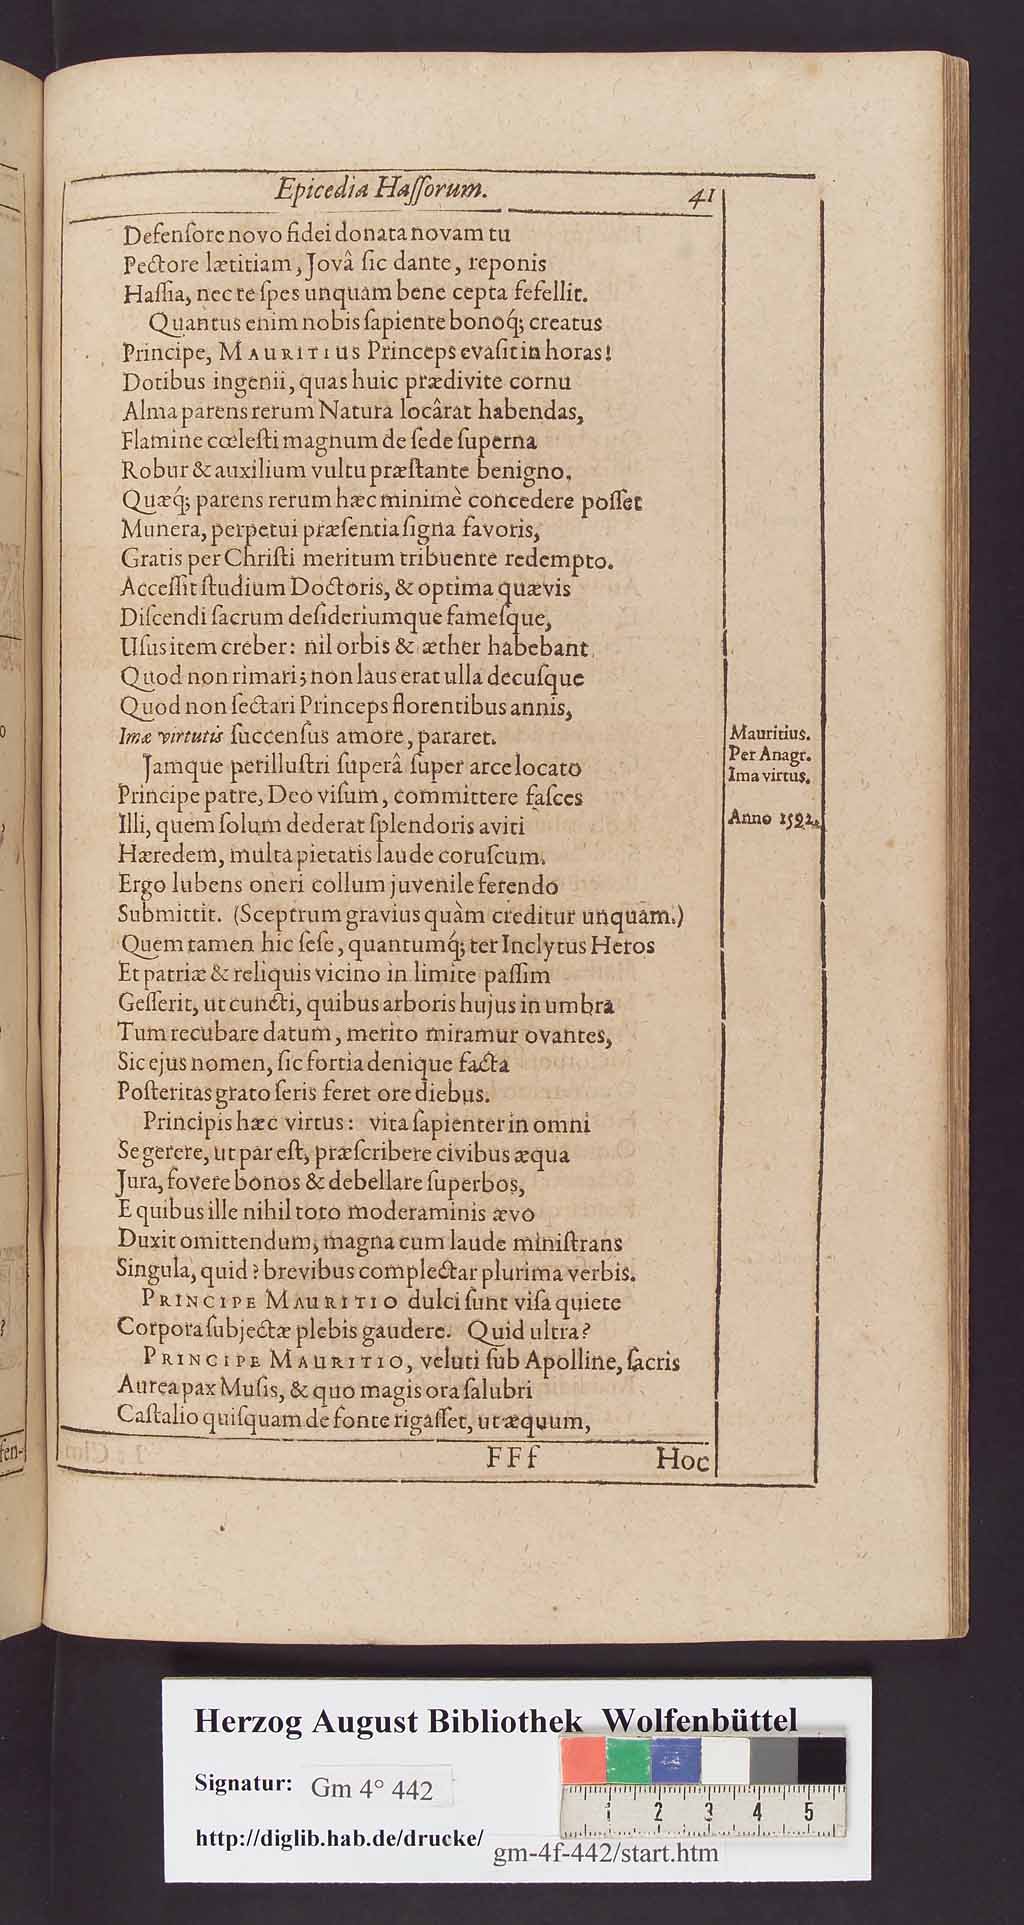 Epicedia Haſſorum. 41
Defenſore novo fidei donata novam tu
Pectore lætitiam, Jovâ ſic dante, reponis
Haſſia, nec te ſpes unquam bene cepta fefellit.
Quantus enim nobis ſapiente bonoq́; creatus
Principe, MAURITIUS Princeps evaſit in horas!
Dotibus ingenii, quas huic prædivite cornu
Alma parens rerum Natura locârat habendas,
Flamine cœleſti magnum de ſede ſuperna
Robur & auxilium vultu præſtante benigno.
Quæq́; parens rerum hæc minimè concedere poſſet
Munera, perpetui præſentia ſigna favoris,
Gratis per Chriſti meritum tribuente redempto.
Acceſſit ſtudium Doctoris, & optima quævis
Diſcendi ſacrum deſideriumque fameſque,
Uſus item creber: nil orbis & æther habebant
Quod non rimari; non laus erat ulla decuſque
Quod non ſectari Princeps florentibus annis,
Imæ virtutis ſuccenſus amore, pararet.
Mauritius.
Per Anagr.
Ima virtus.
Jamque perilluſtri ſuperâ ſuper arce locato
Principe patre, Deo viſum, committere faſces
Illi, quem ſolum dederat ſplendoris aviti
Anno 1592.
Hæredem, multa pietatis laude coruſcum.
Ergo lubens oneri collum juvenile ferendo
Submittit. (Sceptrum gravius quàm creditur unquam.)
Quem tamen hic ſeſe, quantumq́; ter Inclytus Heros
Et patriæ & reliquis vicino in limite paſſim
Geſſerit, ut cuncti, quibus arboris hujus in umbra
Tum recubare datum, merito miramur ovantes,
Sic ejus nomen, ſic fortia denique facta
Poſteritas grato ſeris feret ore diebus.
Principis hæc virtus: vita ſapienter in omni
Se gerere, ut par eſt, præſcribere civibus æqua
Jura, fovere bonos & debellare ſuperbos,
E quibus ille nihil toto moderaminis ævo
Duxit omittendum, magna cum laude miniſtrans
Singula, quid? brevibus complectar plurima verbis.
PRINCIPE MAURITIO dulci ſunt viſa quiete
Corpora ſubjectæ plebis gaudere. Quid ultra?
PRINCIPE MAURITIO, veluti ſub Apolline, ſacris
Aurea pax Muſis, & quo magis ora ſalubri
Caſtalio quiſquam de fonte rigaſſet, ut æquum,
FFf Hoc
Herzog August Bibliothek Wolfenbüttel
Signatur: Gm 4° 442
http://diglib.hab.de/drucke/ gm-4f-442/start.htm
1 2 3 4 5